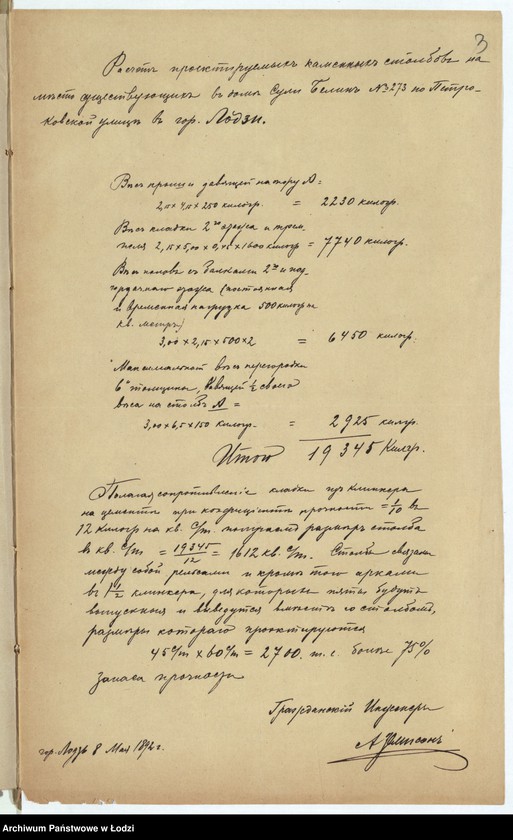 3
Расчетъ проектируемыхъ каменныхъ столбовъ на
мѣсто существующихъ въ домѣ Сули Белинъ № 273 по Петро-
ковской улицѣ въ гор. Лодзи.
Вѣсъ крыши давящей на опору А =
2,15 х 4,15 х 250 килогр. = 2230 килогр.
Вѣсъ кладки 2го яруса и
2,15 х 5,00 х 0,45 х 1600 килогр = 7740 килогр.
Вѣсъ половъ съ балками 2го и под-
(постоянная
и временная нагрузка 500 килогр на
кв. метръ)
3,00 х 2,15 х 500 х 2 = 6450 килогр.
Максимальный вѣсъ перегородки
6" толщины, давящей 1/2 своего
вѣса на столбъ А =
3,00 х 6,5 х 150 килогр. = 2925 килгр.
Итого 19345 Килгр.
Полагая сопротивленіе кладки изъ клинкера
на цементѣ при коэфиціентѣ прочности = 1/10 въ
12 килогр на кв. с/m. получаемъ размѣръ столба
въ кв. с/m = 19345/12 = 1612 кв. с/m. Столбы связаны
между собой рельсами и кромѣ того арками
въ 1 1/2 клинкера, для которыхъ пяты будутъ
выпускныя и выведутся вмѣстѣ со столбомъ,
размѣры котораго проектируются
45 с/m х 60 с/m = 2700. т. е. болѣе 75%
запаса прочности
Гражданскій Инженеръ
гор. Лодзь 8 Мая 1892 г.
Archiwum Państwowe w Łodzi